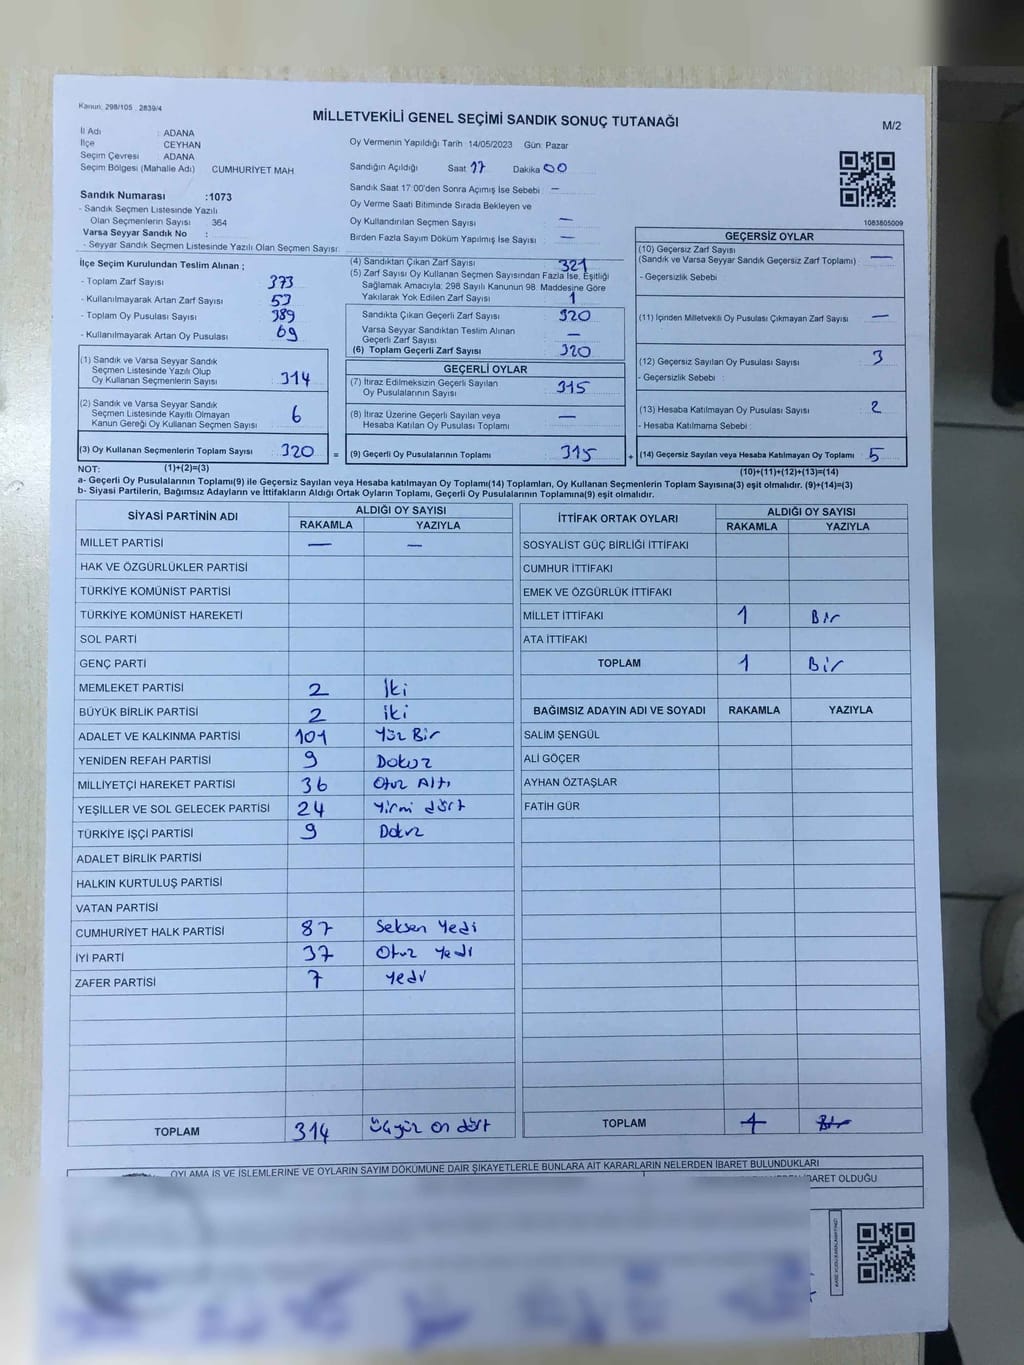 Kanun: 298/105 2839/4
MİLLETVEKİLİ GENEL SEÇİMİ SANDIK SONUÇ TUTANAĞI
M/2
İl Adı : ADANA
İlçe CEYHAN
Seçim Çevresi : ADANA
Seçim Bölgesi (Mahalle Adı) CUMHURİYET MAH
Sandık Numarası :1073
- Sandık Seçmen Listesinde Yazılı
Olan Seçmenlerin Sayısı 364
Varsa Seyyar Sandık No :
- Seyyar Sandık Seçmen Listesinde Yazılı Olan Seçmen Sayısı:
Oy Vermenin Yapıldığı Tarih 14/05/2023 Gün: Pazar
Sandığın Açıldığı Saat 17 Dakika 00
Sandık Saat 17 00'den Sonra Açımış İse Sebebi —
Oy Verme Saati Bitiminde Sırada Bekleyen ve
Oy Kullandırılan Seçmen Sayısı —
Birden Fazla Sayım Döküm Yapılmış İse Sayısı —
1083805009
İlçe Seçim Kurulundan Teslim Alınan ;
- Toplam Zarf Sayısı 373
- Kullanılmayarak Artan Zarf Sayısı 53
- Toplam Oy Pusulası Sayısı 389
- Kullanılmayarak Artan Oy Pusulası 69
(1) Sandık ve Varsa Seyyar Sandık
Seçmen Listesinde Yazılı Olup
Oy Kullanan Seçmenlerin Sayısı 314
(2) Sandık ve Varsa Seyyar Sandık
Seçmen Listesinde Kayıtlı Olmayan
Kanun Gereği Oy Kullanan Seçmen Sayısı 6
(3) Oy Kullanan Seçmenlerin Toplam Sayısı 320 =
(4) Sandıktan Çıkan Zarf Sayısı 321
(5) Zarf Sayısı Oy Kullanan Seçmen Sayısından Fazla İse, Eşitliği
Sağlamak Amacıyla; 298 Sayılı Kanunun 98. Maddesine Göre
Yakılarak Yok Edilen Zarf Sayısı 1
Sandıkta Çıkan Geçerli Zarf Sayısı 320
Varsa Seyyar Sandıktan Teslim Alınan
Geçerli Zarf Sayısı —
(6) Toplam Geçerli Zarf Sayısı 320
GEÇERLİ OYLAR
(7) İtiraz Edilmeksizin Geçerli Sayılan
Oy Pusulalarının Sayısı 315
(8) İtiraz Üzerine Geçerli Sayılan veya
Hesaba Katılan Oy Pusulası Toplamı —
(9) Geçerli Oy Pusulalarının Toplamı 315 +
GEÇERSİZ OYLAR
(10) Geçersiz Zarf Sayısı
(Sandık ve Varsa Seyyar Sandık Geçersiz Zarf Toplamı) —
- Geçersizlik Sebebi
(11) İçinden Milletvekili Oy Pusulası Çıkmayan Zarf Sayısı —
(12) Geçersiz Sayılan Oy Pusulası Sayısı 3
- Geçersizlik Sebebi :
(13) Hesaba Katılmayan Oy Pusulası Sayısı 2
- Hesaba Katılmama Sebebi
(14) Geçersiz Sayılan veya Hesaba Katılmayan Oy Toplamı 5
NOT: (1)+(2)=(3) (10)+(11)+(12)+(13)=(14)
a- Geçerli Oy Pusulalarının Toplamı(9) ile Geçersiz Sayılan veya Hesaba katılmayan Oy Toplamı(14) Toplamları, Oy Kullanan Seçmenlerin Toplam Sayısına(3) eşit olmalıdır. (9)+(14)=(3)
b- Siyasi Partilerin, Bağımsız Adayların ve İttifakların Aldığı Ortak Oyların Toplamı, Geçerli Oy Pusulalarının Toplamına(9) eşit olmalıdır.
SİYASİ PARTİNİN ADI ALDIĞI OY SAYISI
RAKAMLA YAZIYLA
MİLLET PARTİSİ — —
HAK VE ÖZGÜRLÜKLER PARTİSİ
TÜRKİYE KOMÜNİST PARTİSİ
TÜRKİYE KOMÜNİST HAREKETİ
SOL PARTİ
GENÇ PARTİ
MEMLEKET PARTİSİ 2 İki
BÜYÜK BİRLİK PARTİSİ 2 iki
ADALET VE KALKINMA PARTİSİ 101 Yüz Bir
YENİDEN REFAH PARTİSİ 9 Dokuz
MİLLİYETÇİ HAREKET PARTİSİ 36 Otuz Altı
YEŞİLLER VE SOL GELECEK PARTİSİ 24 Yirmi dört
TÜRKİYE İŞÇİ PARTİSİ 9 Dokuz
ADALET BİRLİK PARTİSİ
HALKIN KURTULUŞ PARTİSİ
VATAN PARTİSİ
CUMHURİYET HALK PARTİSİ 87 Seksen Yedi
İYİ PARTİ 37 Otuz Yedi
ZAFER PARTİSİ 7 Yedi
TOPLAM 314 Üçyüz on dört
İTTİFAK ORTAK OYLARI ALDIĞI OY SAYISI
RAKAMLA YAZIYLA
SOSYALİST GÜÇ BİRLİĞİ İTTİFAKI
CUMHUR İTTİFAKI
EMEK VE ÖZGÜRLÜK İTTİFAKI
MİLLET İTTİFAKI 1 Bir
ATA İTTİFAKI
TOPLAM 1 Bir
BAĞIMSIZ ADAYIN ADI VE SOYADI RAKAMLA YAZIYLA
SALİM ŞENGÜL
ALİ GÖÇER
AYHAN ÖZTAŞLAR
FATİH GÜR
TOPLAM 1 Bir
OYLAMA İŞ VE İŞLEMLERİNE VE OYLARIN SAYIM DÖKÜMÜNE DAİR ŞİKAYETLERLE BUNLARA AİT KARARLARIN NELERDEN İBARET BULUNDUKLARI
İBARET OLDUĞU